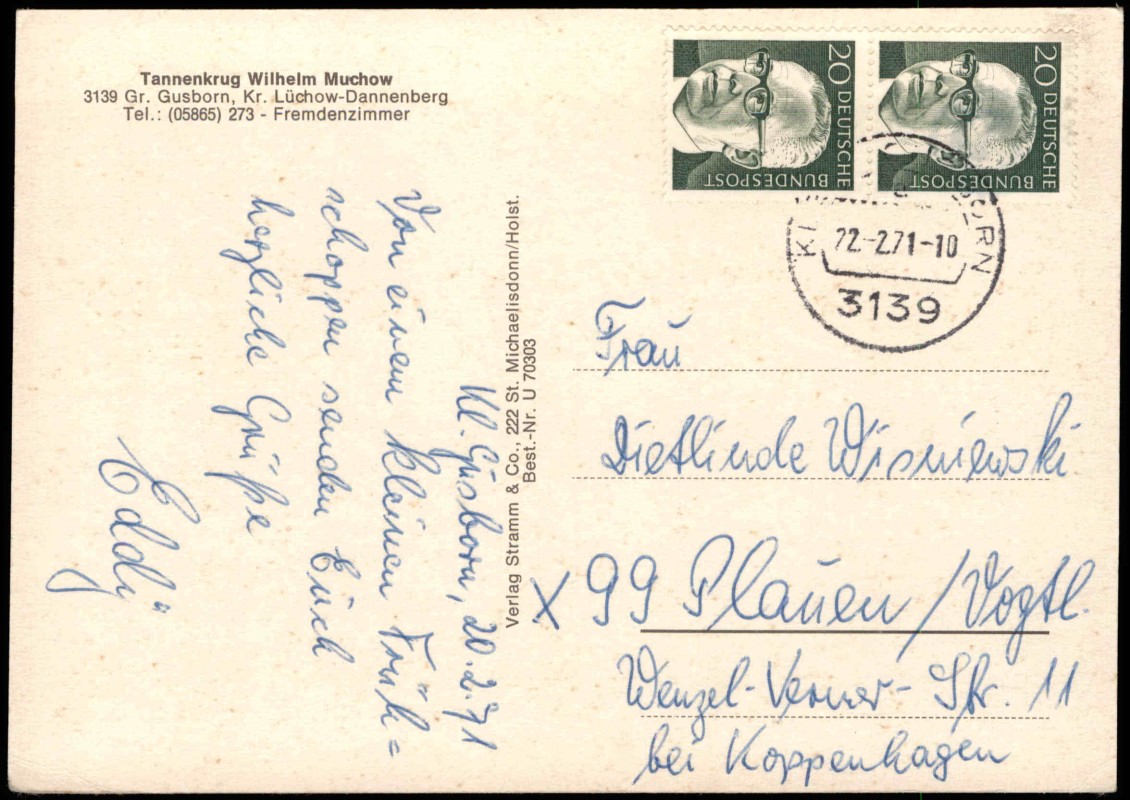 Tannenkrug Wilhelm Muchow
3139 Gr. Gusborn, Kr. Lüchow-Dannenberg
Tel.: (05865) 273 - Fremdenzimmer
Kl. Gusborn, 20.2.71
Von einem kleinen Früh=
schoppen senden Euch
herzliche Grüße
Eddy
Verlag Stramm & Co., 222 St. Michaelisdonn/Holst.
Best.-Nr. U 70303
20 DEUTSCHE BUNDESPOST
20 DEUTSCHE BUNDESPOST
22.-2.71-10
3139
Frau
Dietlinde Wisniewski
X 99 Plauen/Vogtl.
Wenzel-Verner-Str. 11
bei Koppenhagen